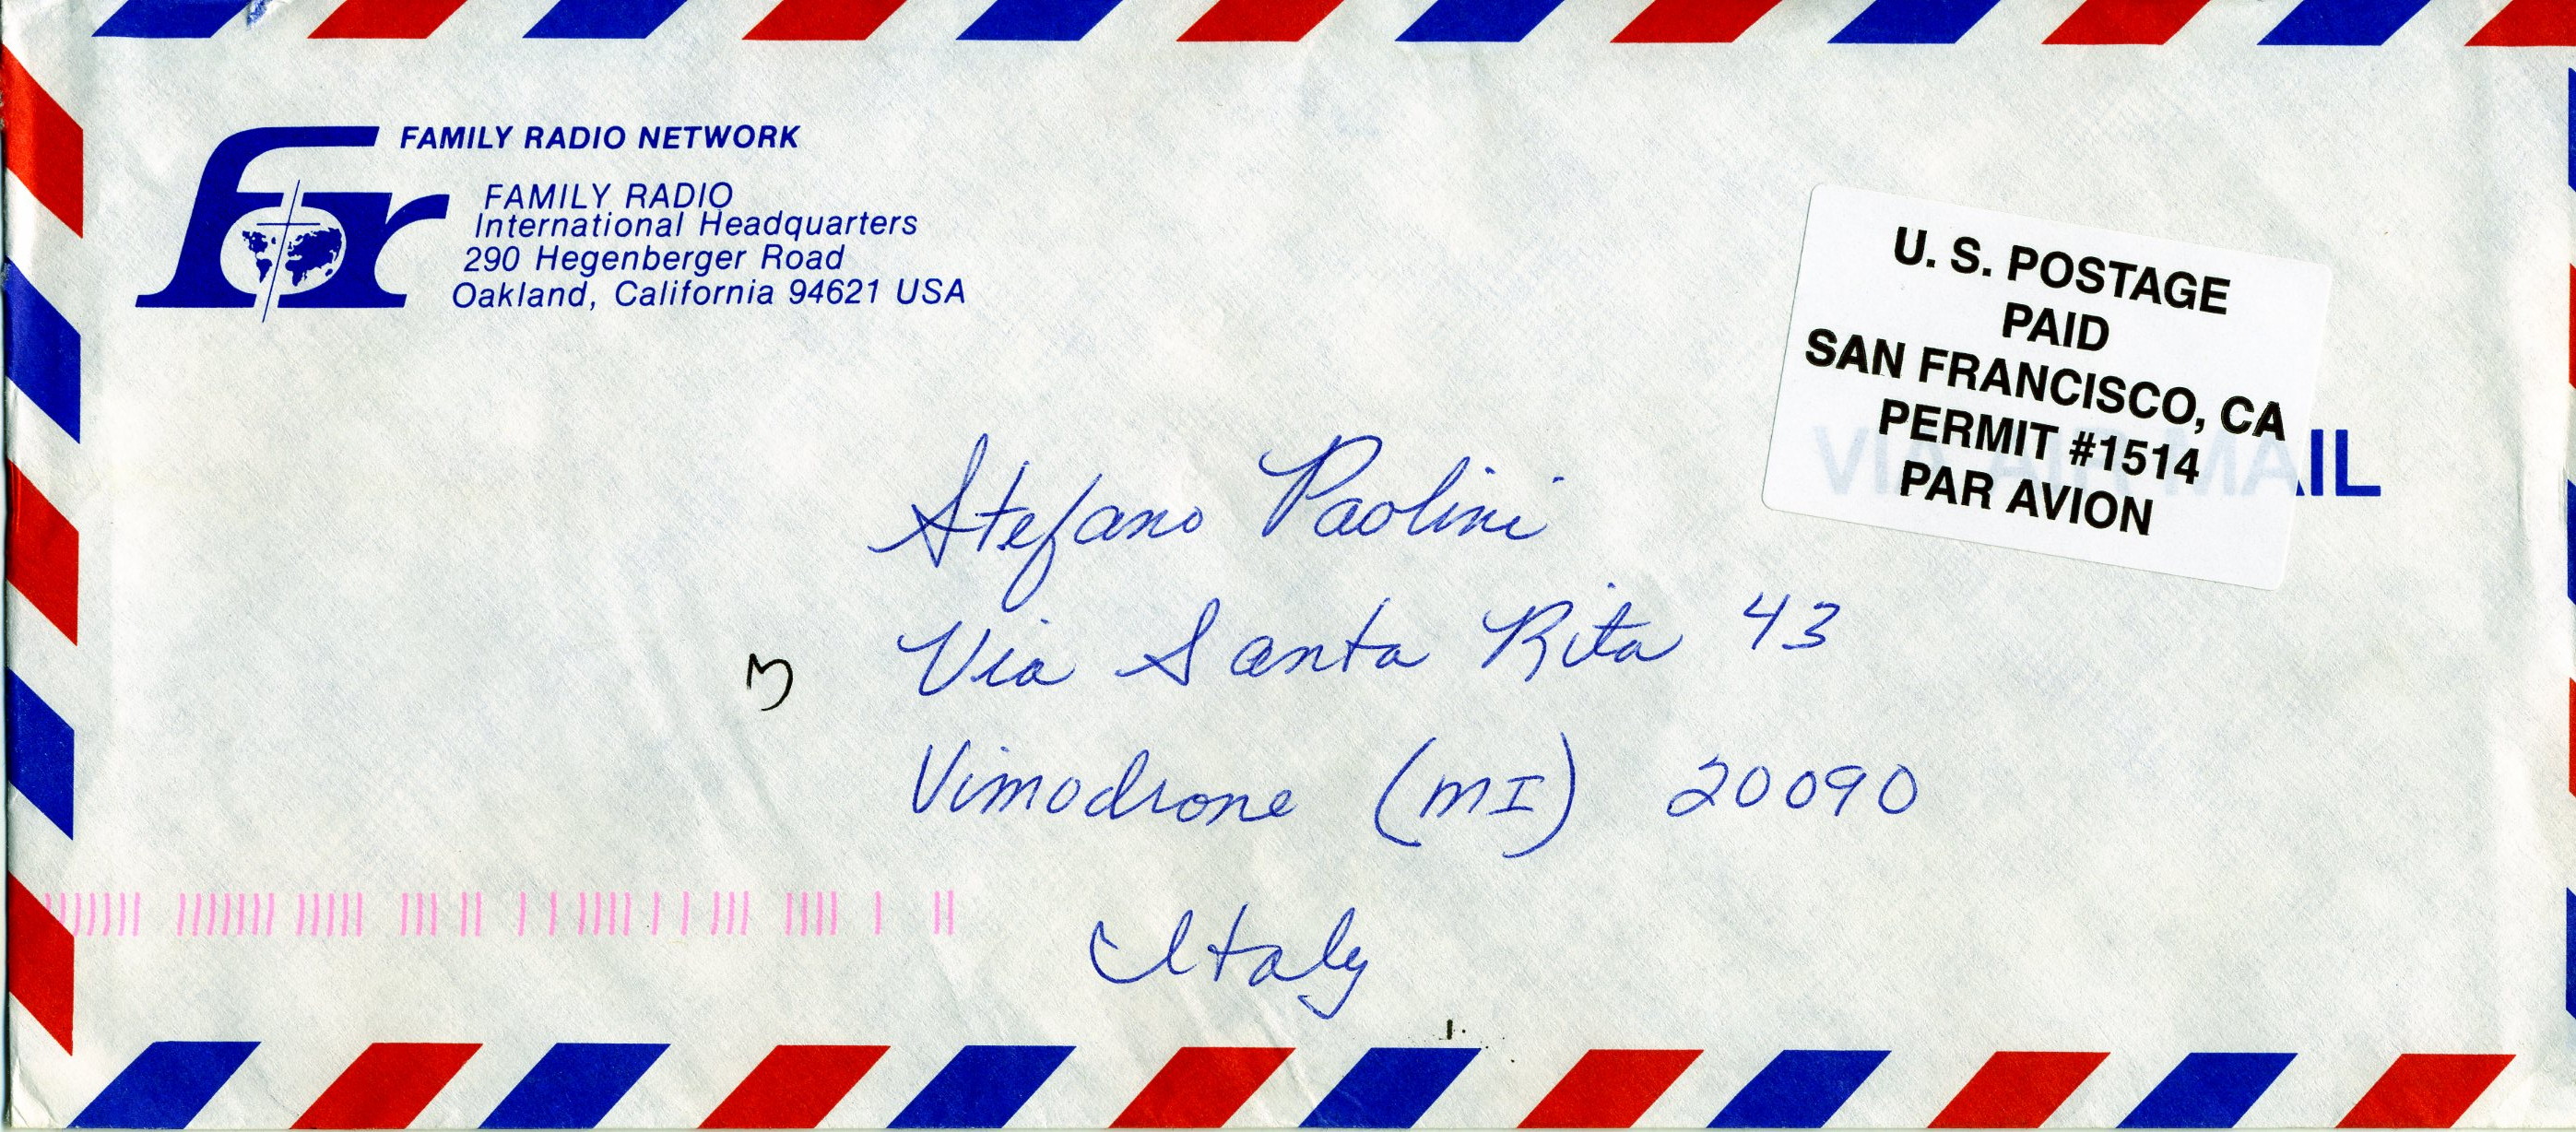 fr
FAMILY RADIO NETWORK
FAMILY RADIO
International Headquarters
290 Hegenberger Road
Oakland, California 94621 USA
U. S. POSTAGE
PAID
SAN FRANCISCO, CA
PERMIT #1514
PAR AVION
VIA AIR MAIL
Stefano Paolini
Via Santa Rita 43
3
Vimodrone (MI) 20090
Italy